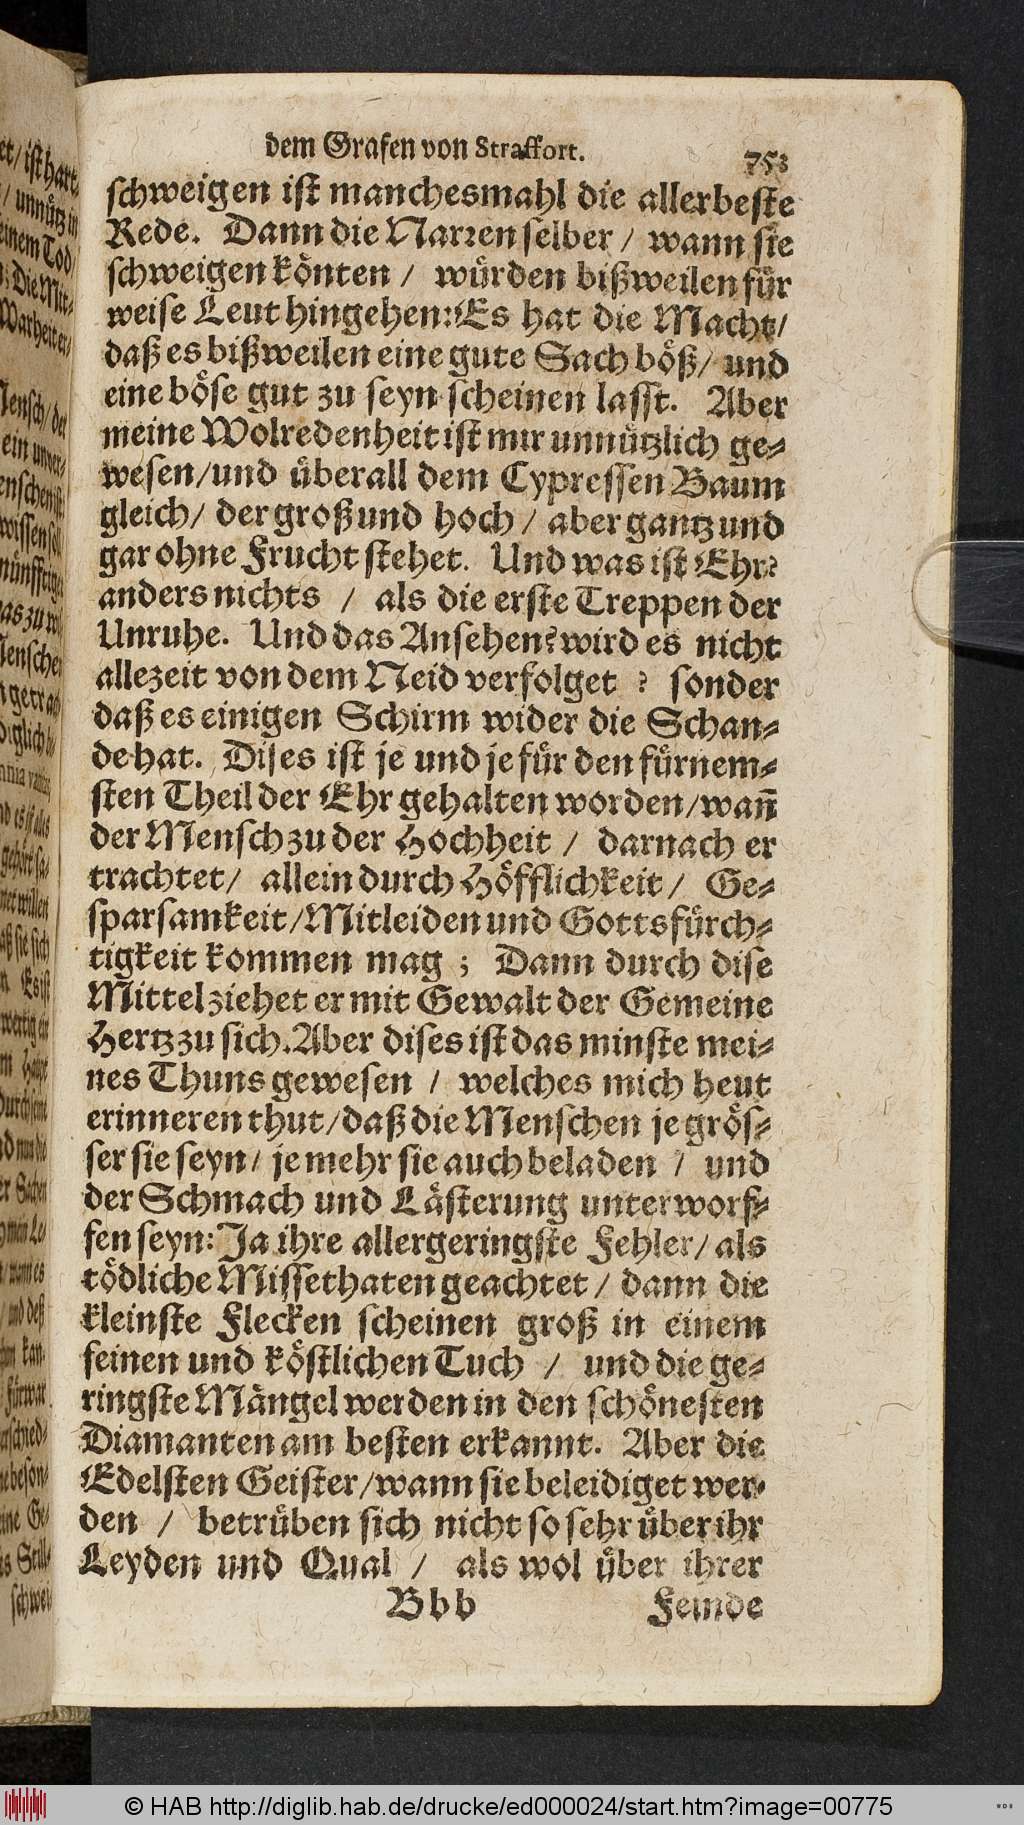 dem Grafen von Straffort. 753
schweigen ist manchesmahl die allerbeste
Rede. Dann die Narren selber / wann sie
schweigen könten / würden bißweilen für
weise Leut hingehen: Es hat die Macht/
daß es bißweilen eine gute Sach böß/ und
eine böse gut zu seyn scheinen lasst. Aber
meine Wolredenheit ist mir unnützlich ge-
wesen/und überall dem Cypressen Baum
gleich/ der groß und hoch / aber gantz und
gar ohne Frucht stehet. Und was ist Ehr?
anders nichts / als die erste Treppen der
Unruhe. Und das Ansehen? wird es nicht
allezeit von dem Neid verfolget ? sonder
daß es einigen Schirm wider die Schan-
de hat. Dises ist je und je für den fürnem-
sten Theil der Ehr gehalten worden/wañ
der Mensch zu der Hochheit / darnach er
trachtet/ allein durch Höfflichkeit/ Ge-
sparsamkeit/Mitleiden und Gottsfürch-
tigkeit kommen mag ; Dann durch dise
Mittel ziehet er mit Gewalt der Gemeine
Hertz zu sich. Aber dises ist das minste mei-
nes Thuns gewesen / welches mich heut
erinneren thut/daß die Menschen je grös-
ser sie seyn/ je mehr sie auch beladen / und
der Schmach und Lästerung unterworf-
fen seyn: Ja ihre allergeringste Fehler/ als
tödliche Missethaten geachtet / dann die
kleinste Flecken scheinen groß in einem
feinen und köstlichen Tuch / und die ge-
ringste Mängel werden in den schönesten
Diamanten am besten erkannt. Aber die
Edelsten Geister/wann sie beleidiget wer-
den / betrüben sich nicht so sehr über ihr
Leyden und Qual / als wol über ihrer
Bbb Feinde
© HAB http://diglib.hab.de/drucke/ed000024/start.htm?image=00775